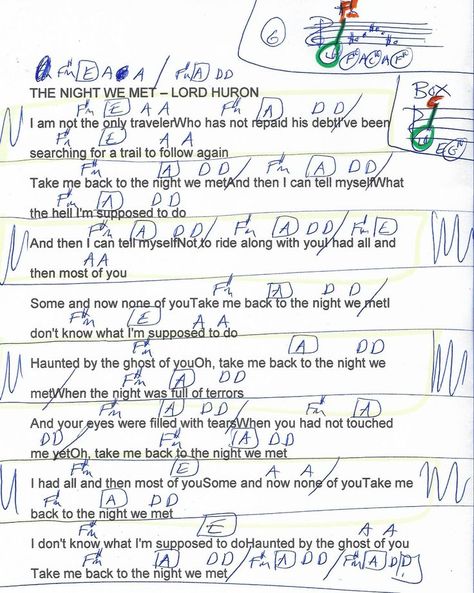 6
FL
F#m E A A / F#m A D D
THE NIGHT WE MET – LORD HURON
BOX
F#m E A A F#m A D D
I am not the only travelerWho has not repaid his debtI've been
F#m E A A
searching for a trail to follow again
F#m A D D / F#m A D D
Take me back to the night we metAnd then I can tell myselfWhat
F#m A D D
the hell I'm supposed to do
F#m A D D / F#m A D D / F#m E
And then I can tell myselfNot to ride along with youI had all and
A A
then most of you
F#m A D D
Some and now none of youTake me back to the night we metI
F#m E A A
don't know what I'm supposed to do
F#m A D D
Haunted by the ghost of youOh, take me back to the night we
F#m A D D
metWhen the night was full of terrors
F#m A D D F#m A
And your eyes were filled with tearsWhen you had not touched
D D F#m A D D
me yetOh, take me back to the night we met
F#m E A A
I had all and then most of youSome and now none of youTake me
F#m A D D
back to the night we met
F#m E A A
I don't know what I'm supposed to doHaunted by the ghost of you
F#m A D D / F#m A D D / F#m A D D
Take me back to the night we met